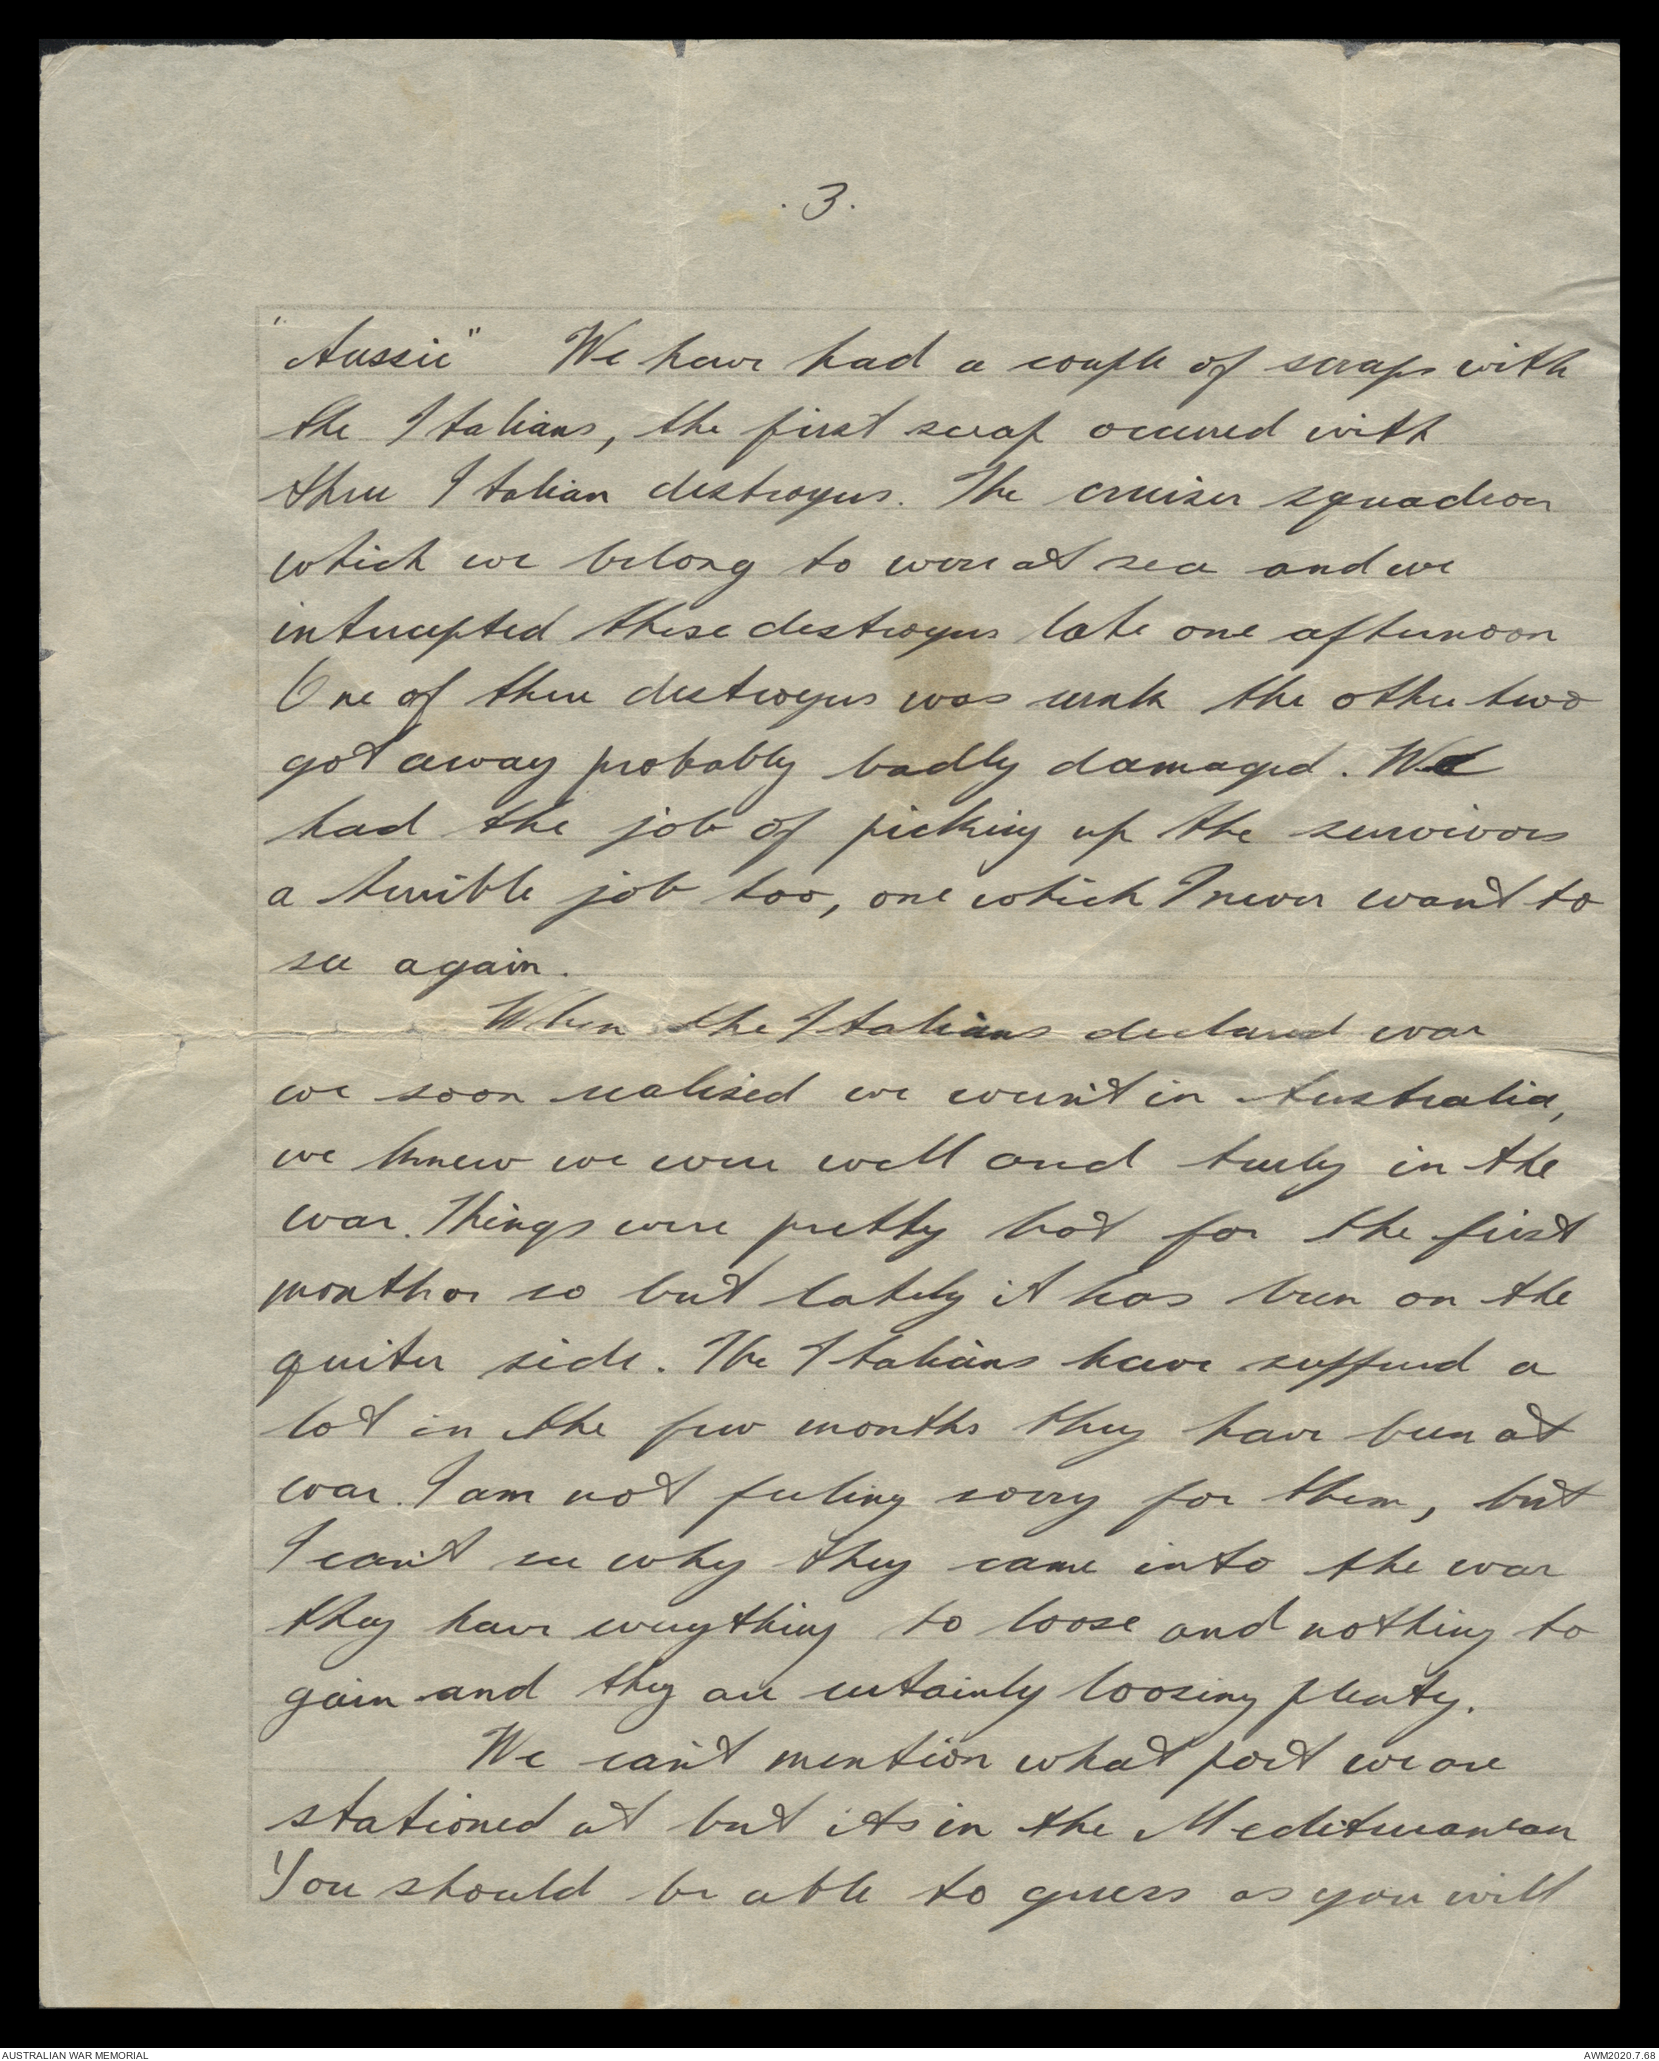 . 3 .
"Aussie" We have had a couple of scraps with
the Italians, the first scrap occured with
three Italian destroyers. The cruiser squadron
which we belong to were at sea and we
intercepted these destroyers late one afternoon
One of three destroyers was sunk the other two
got away probably badly damaged. We
had the job of picking up the survivors
a terrible job too, one which I never want to
see again.
When the Italians declared war
we soon realised we weren't in Australia,
we knew we were well and truly in the
war. Things were pretty hot for the first
month or so but lately it has been on the
quiter side. The Italians have suffered a
lot in the few months they have been at
war. I am not feeling sorry for them, but
I can't see why they came into the war
they have everything to loose and nothing to
gain and they are certainly loosing plenty.
We can't mention what port we are
stationed at but its in the Mediterranean
You should be able to guess as you will
AUSTRALIAN WAR MEMORIAL
AWM2020.7.68